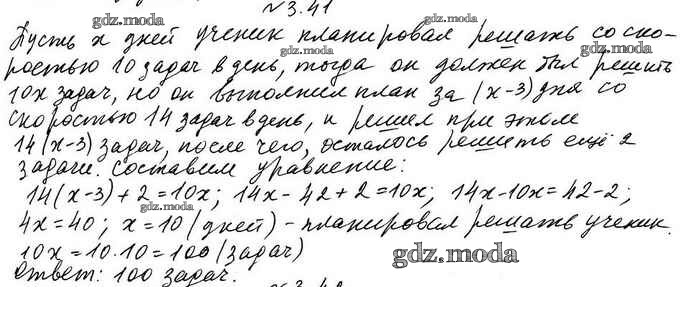 №3.41
gdz.moda
Пусть x дней ученик планировал решать со ско-
gdz.moda
ростью 10 задач в день, тогда он должен был решить
gdz.moda
10x задач, но он выполнил план за (x-3) дня со
скоростью 14 задач в день, и решил при этом
gdz.moda
14(x-3) задач, после чего, осталось решить ещё 2
задачи. Составим уравнение:
14(x-3)+2=10x; 14x-42+2=10x; 14x-10x=42-2;
gdz.moda
4x=40; x=10 (дней) - планировал решать ученик.
10x=10·10=100 (задач)
gdz.moda
Ответ: 100 задач.